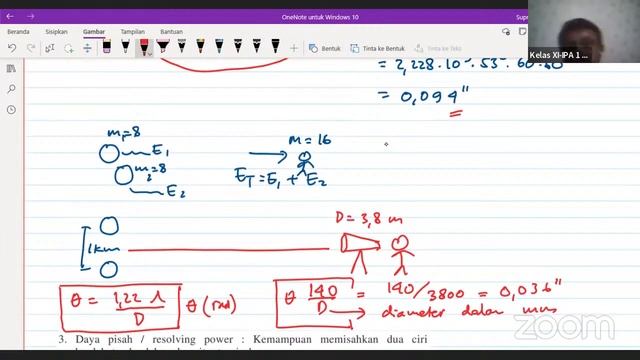 OneNote untuk Windows 10
Beranda Sisipkan Gambar Tampilan Bantuan
Bentuk Tinta ke Bentuk Tinta ke Teks
Kelas XI-IPA 1
= 0,094"
m₁=8
E₁
m₂=8
E₂
m = 16
E_T = E₁ + E₂
1km
D = 3,8 m
θ = 1,22 λ / D
θ (rad)
θ 140 / D = 140/3800 = 0,036"
diameter dalam mm
3. Daya pisah / resolving power : Kemampuan memisahkan dua ciri
zoom